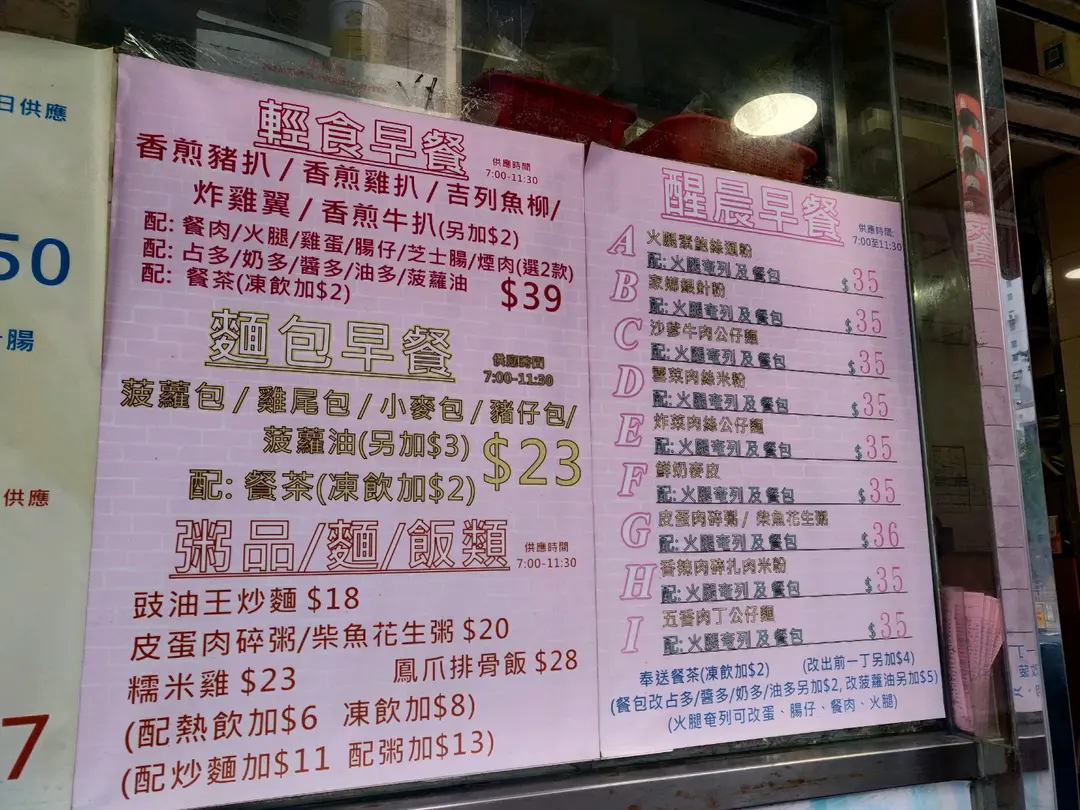 日供應
50
腸
供應
7
輕食早餐
供應時間
7:00-11:30
香煎豬扒/香煎雞扒/吉列魚柳/
炸雞翼/香煎牛扒(另加$2)
配: 餐肉/火腿/雞蛋/腸仔/芝士腸/煙肉(選2款)
配: 占多/奶多/醬多/油多/菠蘿油
配: 餐茶(凍飲加$2) $39
麵包早餐
供應時間
7:00-11:30
菠蘿包/雞尾包/小麥包/豬仔包/
菠蘿油(另加$3) $23
配: 餐茶(凍飲加$2)
粥品/麵/飯類
供應時間
7:00-11:30
豉油王炒麵 $18
皮蛋肉碎粥/柴魚花生粥 $20
糯米雞 $23 鳳爪排骨飯 $28
(配熱飲加$6 凍飲加$8)
(配炒麵加$11 配粥加$13)
醒晨早餐
供應時間:
7:00至11:30
A 火腿素鮑絲通粉
配: 火腿奄列 及 餐包 $35
B 家鄉銀針粉
配: 火腿奄列 及 餐包 $35
C 沙嗲牛肉公仔麵
配: 火腿奄列 及 餐包 $35
D 雪菜肉絲米粉
配: 火腿奄列 及 餐包 $35
E 炸菜肉絲公仔麵
配: 火腿奄列 及 餐包 $35
F 鮮奶麥皮
配: 火腿奄列 及 餐包 $35
G 皮蛋肉碎粥 / 柴魚花生粥
配: 火腿奄列 及 餐包 $36
H 香辣肉碎扎肉米粉
配: 火腿奄列 及 餐包 $35
I 五香肉丁公仔麵
配: 火腿奄列 及 餐包 $35
奉送餐茶(凍飲加$2) (改出前一丁另加$4)
(餐包改占多/醬多/奶多/油多另加$2, 改菠蘿油另加$5)
(火腿奄列可改蛋、腸仔、餐肉、火腿)